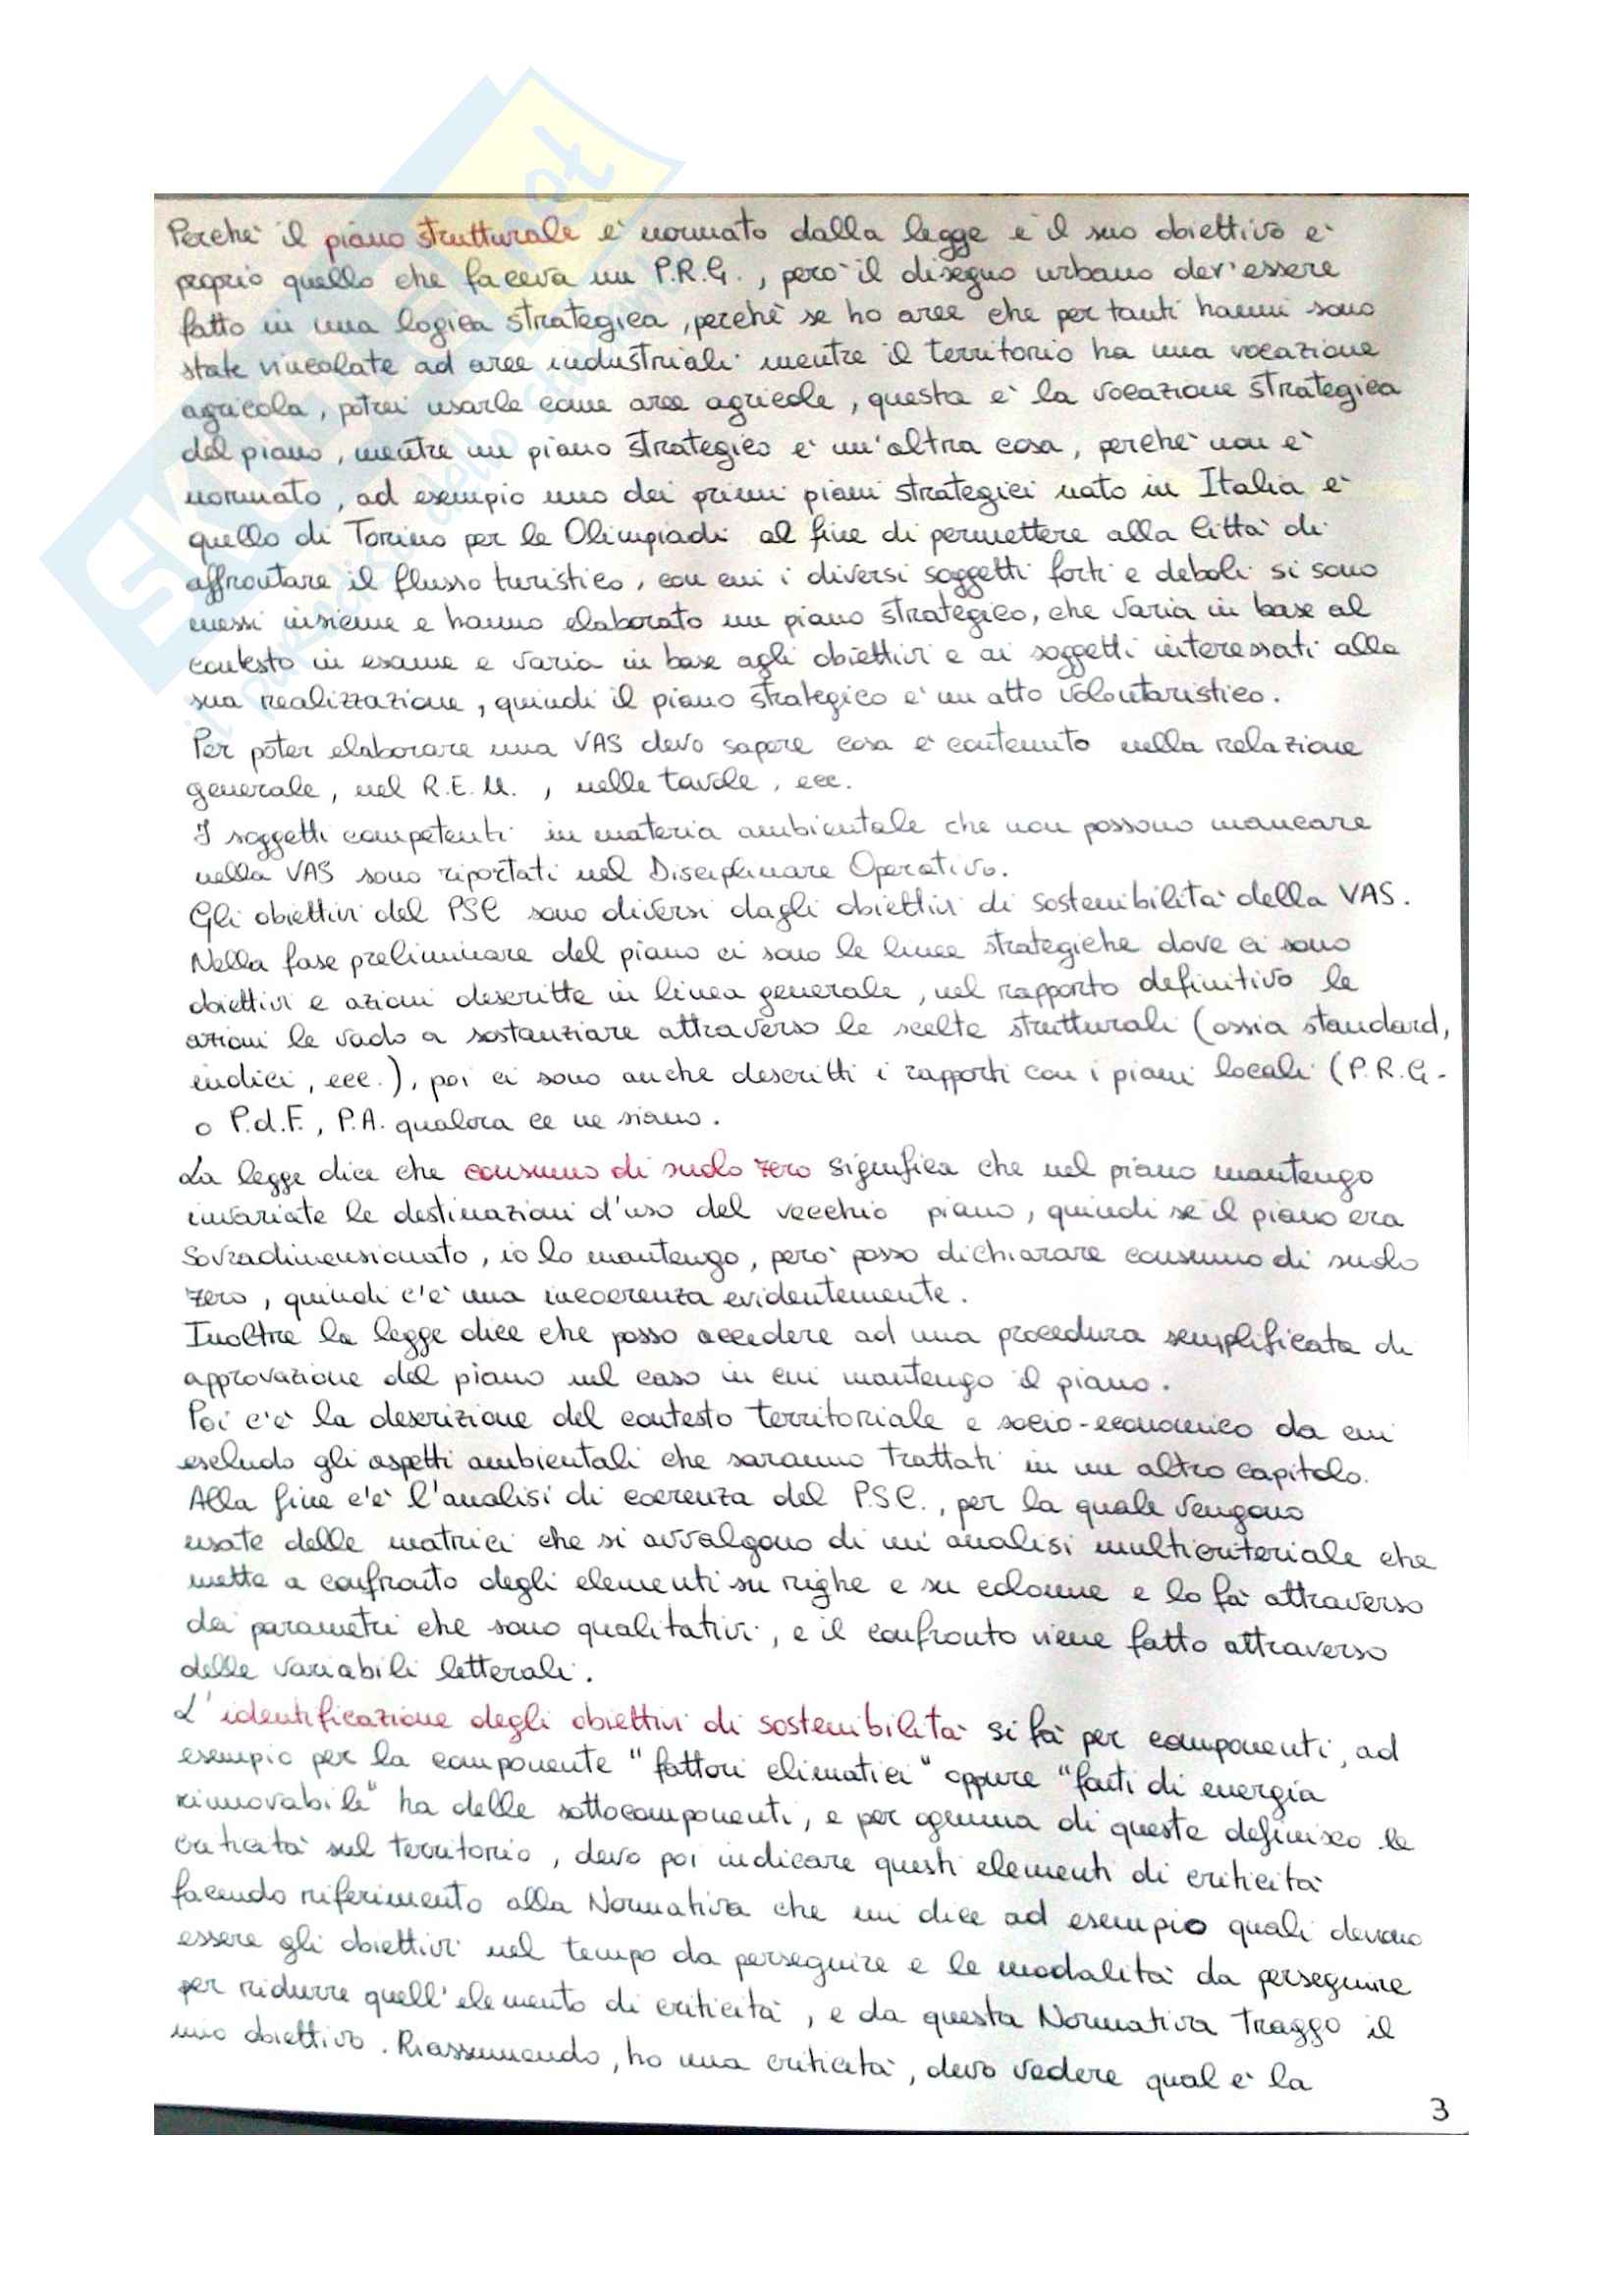 SKUOLA.net
il paradiso dello studente
Perchè il piano strutturale è normato dalla legge e il suo obiettivo è
proprio quello che faceva un P.R.G., però il disegno urbano dev'essere
fatto in una logica strategica, perchè se ho aree che per tanti hanni sono
state vincolate ad aree industriali mentre il territorio ha una vocazione
agricola, potrei usarle come aree agricole, questa è la vocazione strategica
del piano, mentre un piano strategico è un'altra cosa, perchè non è
normato, ad esempio uno dei primi piani strategici nato in Italia è
quello di Torino per le Olimpiadi al fine di permettere alla città di
affrontare il flusso turistico, con cui i diversi soggetti forti e deboli si sono
messi insieme e hanno elaborato un piano strategico, che varia in base al
contesto in esame e varia in base agli obiettivi e ai soggetti interessati alla
sua realizzazione, quindi il piano strategico è un atto volontaristico.
Per poter elaborare una VAS devo sapere cosa è contenuto nella relazione
generale, nel R.E.U., nelle tavole, ecc.
I soggetti competenti in materia ambientale che non possono mancare
nella VAS sono riportati nel Disciplinare Operativo.
Gli obiettivi del PSC sono diversi dagli obiettivi di sostenibilità della VAS.
Nella fase preliminare del piano ci sono le linee strategiche dove ci sono
obiettivi e azioni descritte in linea generale, nel rapporto definitivo le
azioni le vado a sostanziare attraverso le scelte strutturali (ossia standard,
indici, ecc.), poi ci sono anche descritti i rapporti con i piani locali (P.R.G.
o P.d.F., P.A. qualora ce ne siano.
La legge dice che consumo di suolo zero significa che nel piano mantengo
invariate le destinazioni d'uso del vecchio piano, quindi se il piano era
sovradimensionato, io lo mantengo, però posso dichiarare consumo di suolo
zero, quindi c'è una incoerenza evidentemente.
Inoltre la legge dice che posso accedere ad una procedura semplificata di
approvazione del piano nel caso in cui mantengo il piano.
Poi c'è la descrizione del contesto territoriale e socio-economico da cui
escludo gli aspetti ambientali che saranno trattati in un altro capitolo.
Alla fine c'è l'analisi di coerenza del P.S.C., per la quale vengono
usate delle matrici che si avvalgono di un'analisi multicriteriale che
mette a confronto degli elementi su righe e su colonne e lo fà attraverso
dei parametri che sono qualitativi, e il confronto viene fatto attraverso
delle variabili letterali.
L'identificazione degli obiettivi di sostenibilità si fà per componenti, ad
esempio per la componente "fattori climatici" oppure "fonti di energia
rinnovabili" ha delle sottocomponenti, e per ognuna di queste definisco le
criticità sul territorio, devo poi indicare questi elementi di criticità
facendo riferimento alla Normativa che mi dice ad esempio quali devono
essere gli obiettivi nel tempo da perseguire e le modalità da perseguire
per ridurre quell'elemento di criticità, e da questa Normativa traggo il
mio obiettivo. Riassumendo, ho una criticità, devo vedere qual è la
3